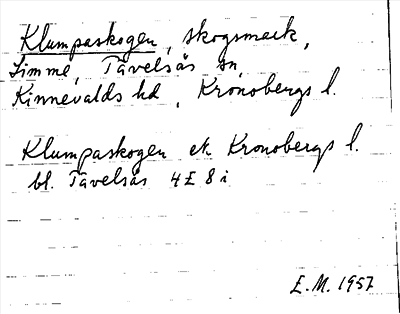 Klumpaskogen, skogsmark,
Simme, Tävelsås sn,
Kinnevalds hd, Kronobergs l.
Klumpaskogen ek Kronobergs l.
bl. Tävelsås 4E 8i
E.M. 1957